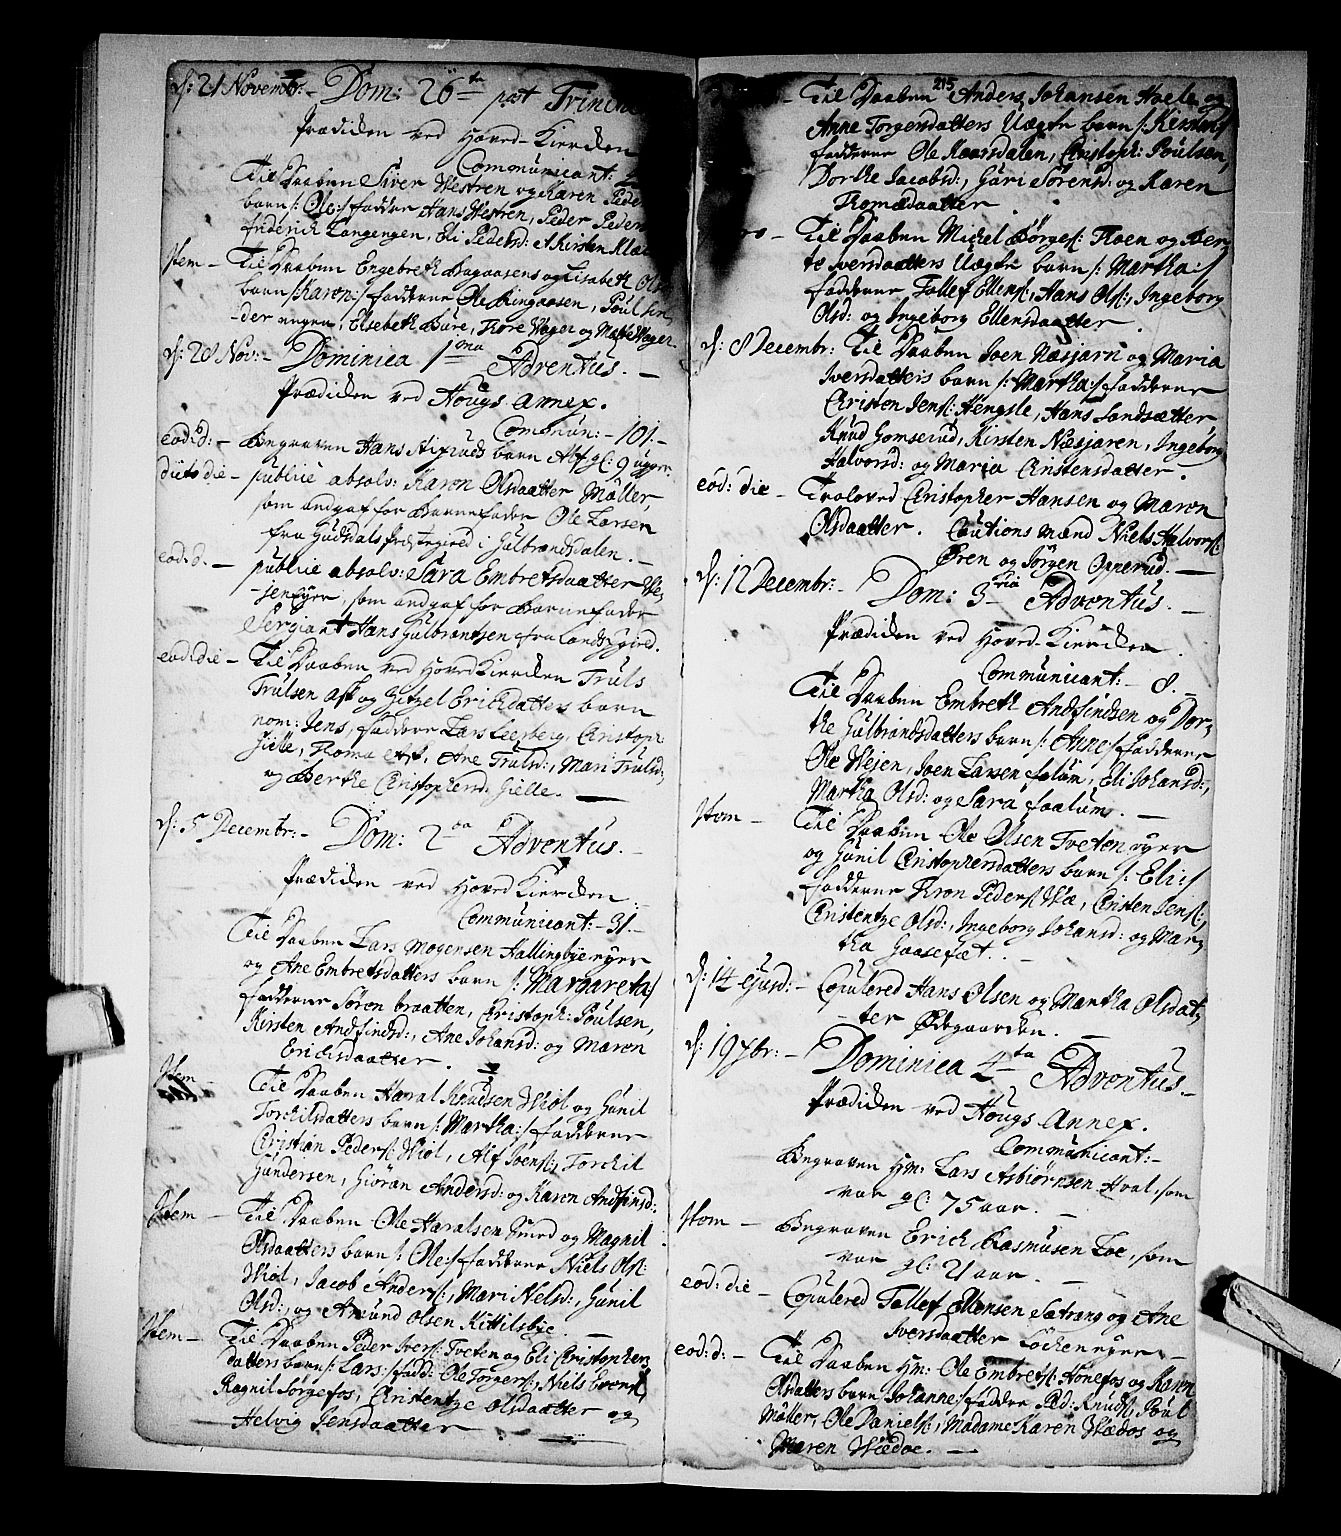 d: 21 Novembr: – Dom: 26te post Trinit
Prædichen ved Hoved-Kierchen
Communicant:
Til Daaben Siver Westren og Karen Peder
barn /: Ole :/ faddre Hans Westren, Peder Peders
friderich Langengen, Eli Pedersd: & Kirsten
Item – Til Daaben Engebreth Bagaasens og Lisabeth Ols
barn /: Karen :/ fadderne Ole Ringaasen, Poul
der engen, Elsebeth Bure, Tore Wager og Wager
d: 28 Nov: – Dominica 1ma Adventus. –
Prædichen ved Hougs Annex.
Commun: – 101. –
eod: d: – Begraven Hans barn Alf gl: 9 uger.
dieto die – publice absolv: Karen Olsdaatter Møller,
som angaf for Barnefader Ole Larsen
fra Gudsdals Præstegield i Gulbrandsdalen. –
eod: d. – publice absolv: Sara Embretsdaatter We-
jeneyer, som andgaf for Barnefader
Sergiant Hans Gulbrantsen fra Lands gield.
eod: die – Til Daaben ved Hoved Kierchen Truls
Trulsen Ask og Gitzel Erichdatters barn
nom: Jens, faddere Lars Leerberg, Christoph
Gielle, Thomas Ask, Ane Trulsd:, Mari Trulsd:
og Berthe Christophersd: Gielle. –
d: 5 Decembr: – Dom: 2da Adventus. –
Prædichen ved Hoved Kierchen. –
Communicant: – 31. –
Til Daaben Lars Mogensen Hallingbye eyer
og Ane Embretsdatters barn /: Margareta :/
fadderne Søren braatten, Christoph: Poulsen,
Kirsten Andfindsd:, Ane Johansd: og Maren
Erichsdaatter.
Item – Til Daaben Haral Knudsen Wiøl og Gunil
Torchilsdatters barn /: Martha :/ fadderne
Christian Peders: Wiøl, Alf Joens:, Torchil
Gundersen, Giøran Andersd: og Karen Andfinsd:
Item – Til Daaben Ole Haralsen Smed og Magnil
Olsdaatters barn /: Ole :/ fadderne Niels Ols:
Wiøl, Jacob Anders:, Mari Nelsd:, Gunil
Olsd:, og Amund Olsen Kittilsbye. –
Item – Til Daaben Peder Ivers: Tveten og Eli Christophers
datters barn /: Lars :/ fadd: Ole Torgers:, Niels Evens:
Ragnil Sørgefos, Christentze Olsdaatter og
Helvig Jensdaatter
215
– Til Daaben Anders Johansen Haels og
Anne Torgersdatters Uægte barn /: Kersten :/
fadderne Ole Kaarsdalen, Christoph: Poulsen,
Dorthe Jacobsd:, Guri Sørensd: og Karen
Thomædaatter.
– Til Daaben Michel Børges: Hoen og Ber-
te Iversdaatters Uægte barn /: Martha :/
fadderne Tollef Ellens:, Hans Ols:, Ingeborg
Olsd: og Ingeborg Ellensdaatter.
d: 8 Decembr: Til Daaben Joen Næsjarn og Maria
Iversdatters barn /: Martha :/ fadderne
Christen Jens: Hengsle, Hans Sandsætter
Knud Gomserud, Kirsten Næsjaren, Ingeborg
Halvorsd: og Maria Christensdatter.
eod: die – Troloved Christopher Hansen og Maren
Olsdaatter. Cautions mænd Niels Halvors:
Øren og Jörgen Opperud. –
d: 12 Decembr: – Dom: 3tia Adventus. –
Prædichen ved Hoved-Kierchen.
Communicant: – 8. –
Til Daaben Embreth Andfindsen og Dor-
the Gulbrandsdatters barn /: Anne :/ fadderne
Ole Wejen, Joen Larsen foløm, Eli Johansd:,
Martha Olsd: og Sara faalum. –
Item – Til Daaben Ole Olsen Tveten eyer
og Gunil Christophersdatters barn /: Eli :/
fadderne Aron Peders: Wæ, Christen Jens:
Christentze Olsd:, Ingeborg Johansd: og Mar-
tha Gaasefæt.
d: 14 ejusd: – Copulered Hans Olsen og Martha Olsdat-
ter Ødegaarden. –
d: 19 xbr: – Dominica 4ta Adventus.
Prædichen ved Hougs Annex.
Communicant: –
Begraven Hm: Lars Asbiørnsen Hval, som
var gl: 75 aar. –
Item – Begraven Erich Rasmusen Loe, som
var gl: 21 aar. –
eod: die – Copulered Tollef Ellensen Satrang og Ane
Iversdaatter Løchen eyer –
eod: d: – Til Daaben Hm: Ole Embrets: Hönefos og Karen
Olsdatters barn Johanne :/ faddre Ped: Knuds:, Poul
Møller, Ole Daniels:, Madame Karen Wædos og
Maren Wædoe. –